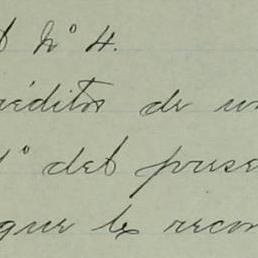 nº 4.
réditos de un
1º del prese
que les recon